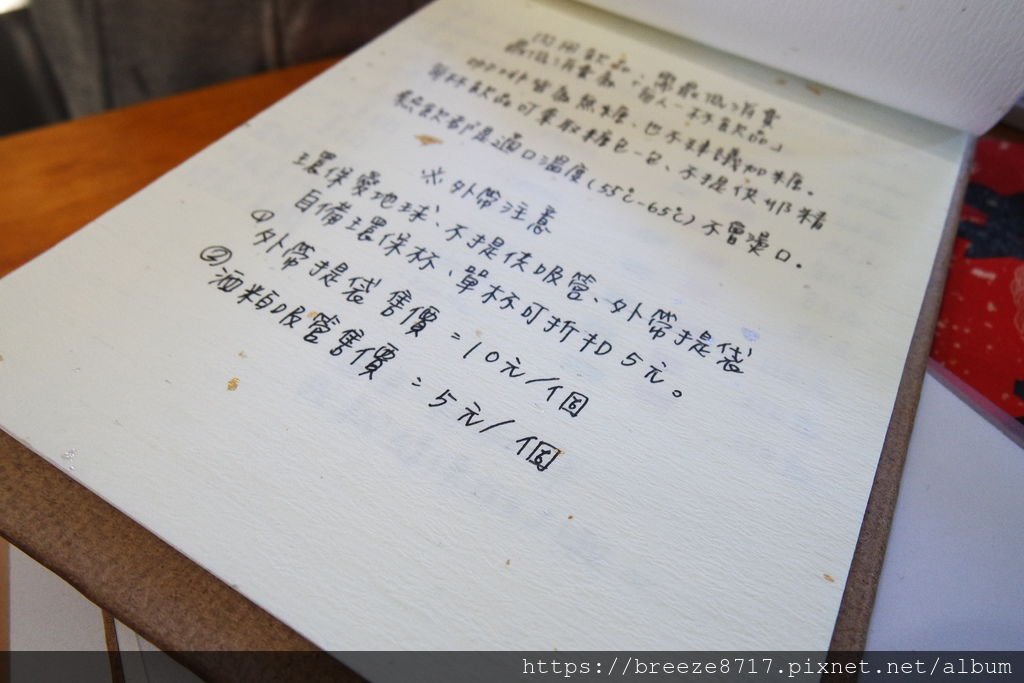 內用飲品：需最低消費
最低消費為「每人一杯飲品」
咖啡皆為無糖、也不建議加糖。
每杯飲品可索取糖包一包、不提供奶精
熱飲都是適口溫度(55℃-65℃)不會燙口。
※外帶注意
環保愛地球、不提供吸管、外帶提袋
自備環保杯、單杯可折扣5元。
①外帶提袋售價=10元/個
②酒米的吸管售價=5元/個
https://breeze8717.pixnet.net/album